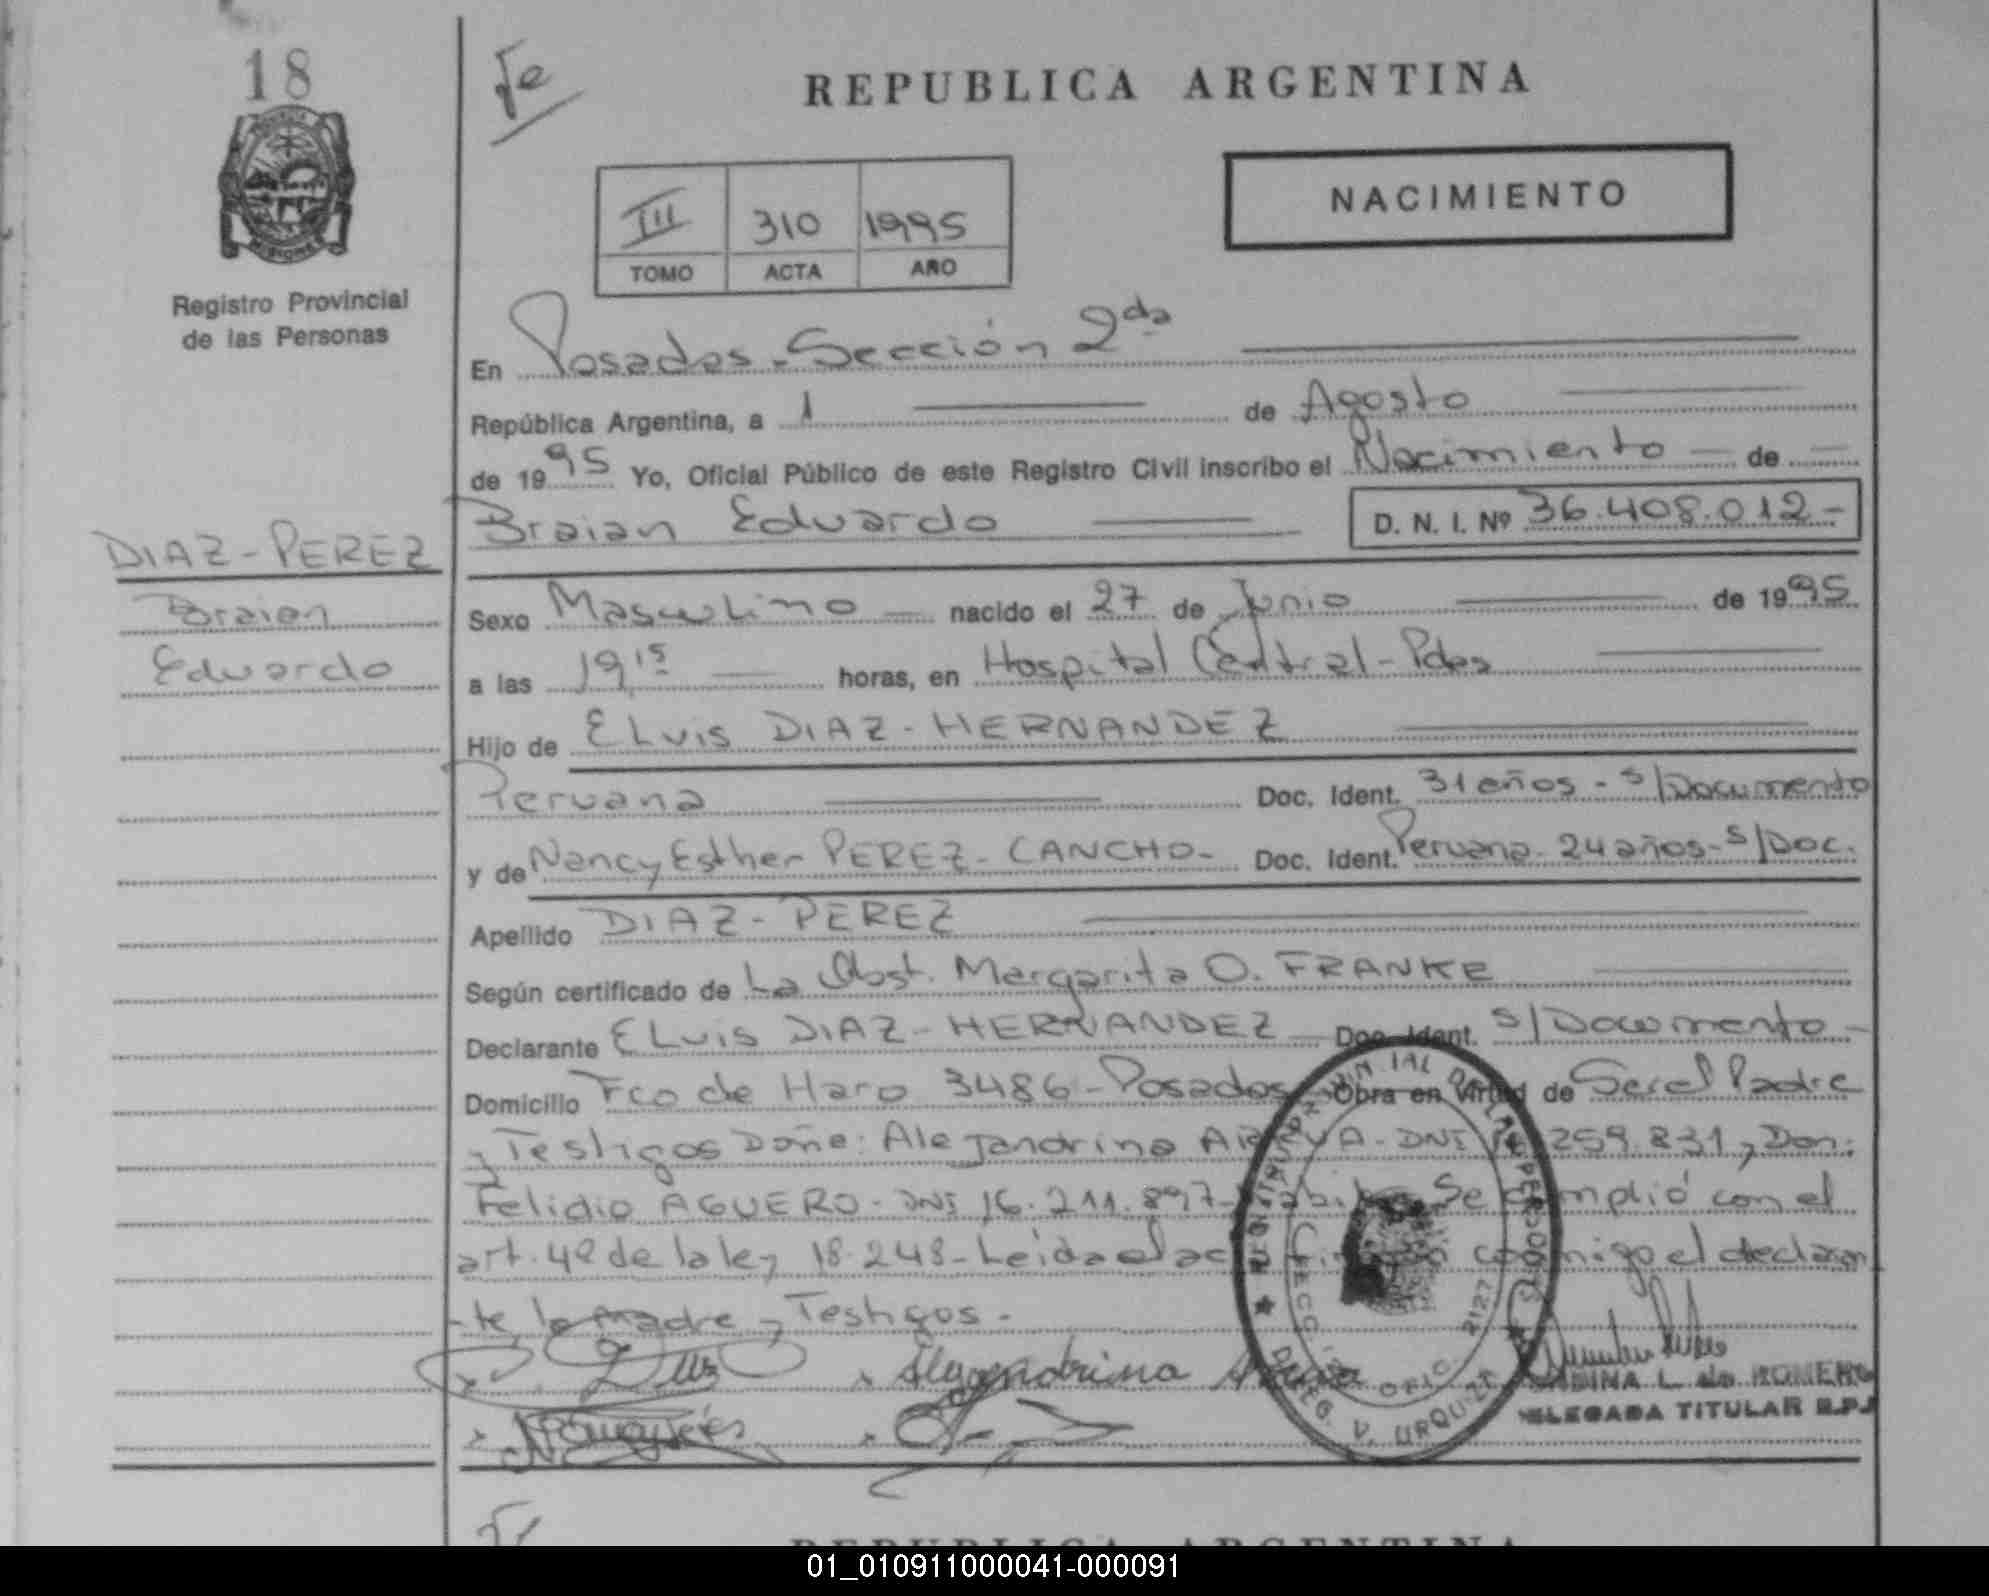 18
fe
REPUBLICA ARGENTINA
NACIMIENTO
III 310 1995
TOMO ACTA AÑO
Registro Provincial
de las Personas
En Posadas - Sección 2da
República Argentina, a 1 de Agosto
de 1995 Yo, Oficial Público de este Registro Civil inscribo el Nacimiento de
Braian Eduardo D. N. I. Nº 36.408.012-
DIAZ-PEREZ
Braian
Eduardo
Sexo Masculino nacido el 27 de Junio de 1995
a las 19,15 horas, en Hospital Central - Pdas
Hijo de ELVIS DIAZ - HERNANDEZ
Peruana Doc. Ident. 31 años - s/Documento
y de Nancy Esther PEREZ - CANCHO - Doc. Ident. Peruana - 24 años - s/Doc.
Apellido DIAZ - PEREZ
Según certificado de La Obst. Margarita O. FRANKE
Declarante ELVIS DIAZ - HERNANDEZ Doc. Ident. s/Documento -
Domicilio Fco de Haro 3486 - Posadas Obra en Virtud de Ser el Padre
y Testigos Doña: Alejandrina DNI 259.831 y Don:
Felidio AGUERO - DNI 16.211.897 - Se cumplió con el
art. 4º de la ley 18.248 - Leida el conmigo el declaran
-te, la Madre y Testigos.
Alejandrina
L. de ROMERO
DELEGADA TITULAR R.P.
DELEG. V. URQUIZA
REPUBLICA ARGENTINA
01_010911000041-000091